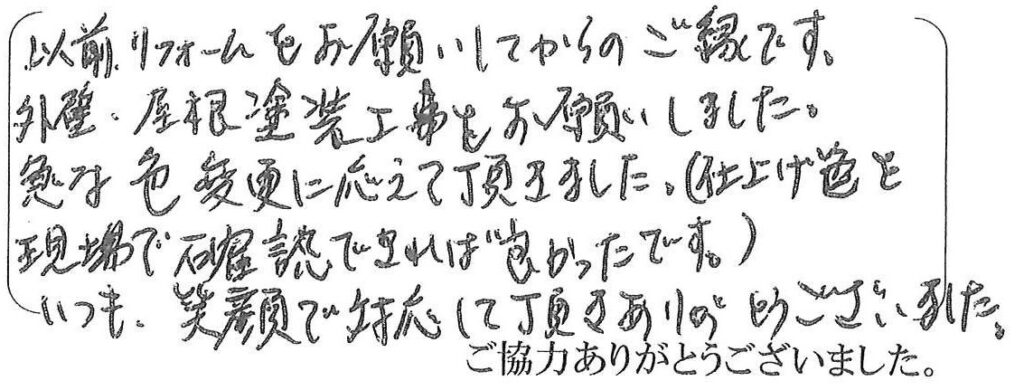 以前、リフォームをお願いしてからのご縁です。
外壁・屋根塗装工事もお願いしました。
急な色変更に応えて頂きました。(仕上げ色を
現場で確認できれば良かったです。)
いつも、笑顔で対応して頂きありがとうございました。
ご協力ありがとうございました。